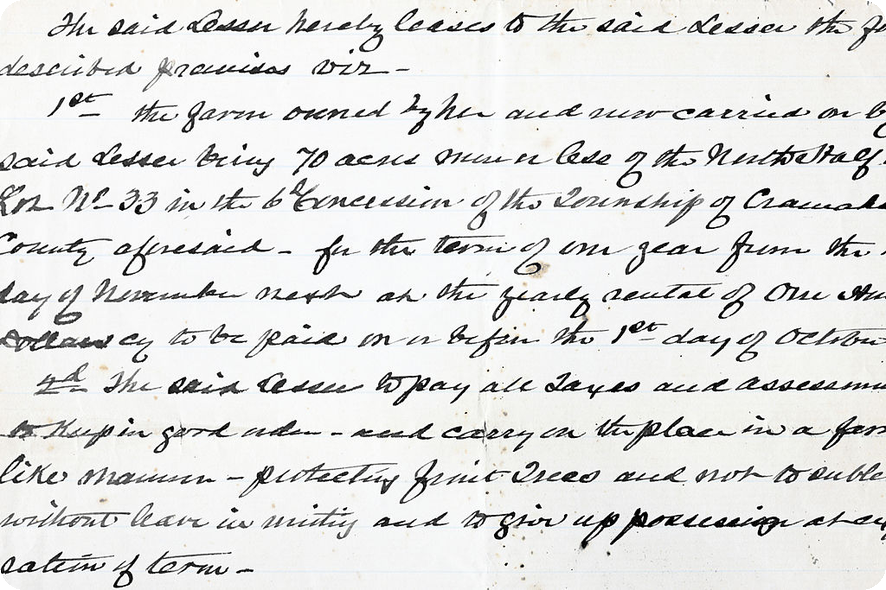 The said Lessor hereby leases to the said Lessee the
described premises viz -
1st the farm owned by her and now carried on by
said Lessee being 70 acres more or less of the North Half
Lot No 33 in the 6th Concession of the Township of Cramahe
County aforesaid - for the term of one year from the
day of November next at the yearly rental of One
Dollars cy to be paid on or before the 1st day of October
2d The said Lessee to pay all Taxes and assessm
to Keep in good order - and carry on the place in a far
like manner - protecting fruit Trees and not to suble
without leave in writing and to give up possession at exp
ration of term -